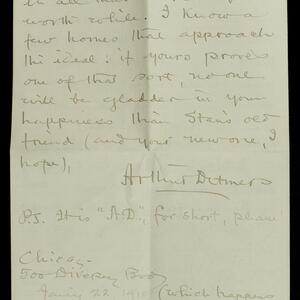 in all that
worth while. I know a
few homes that approach
the ideal: if yours proves
one of that sort, no one
will be gladder in your
happiness than Stans old
friend (and your new one, I
hope),
Arthur Detmers
P.S. It is "A.D.", for short, please!
Chicago-
500 Diversey
22, (which happens